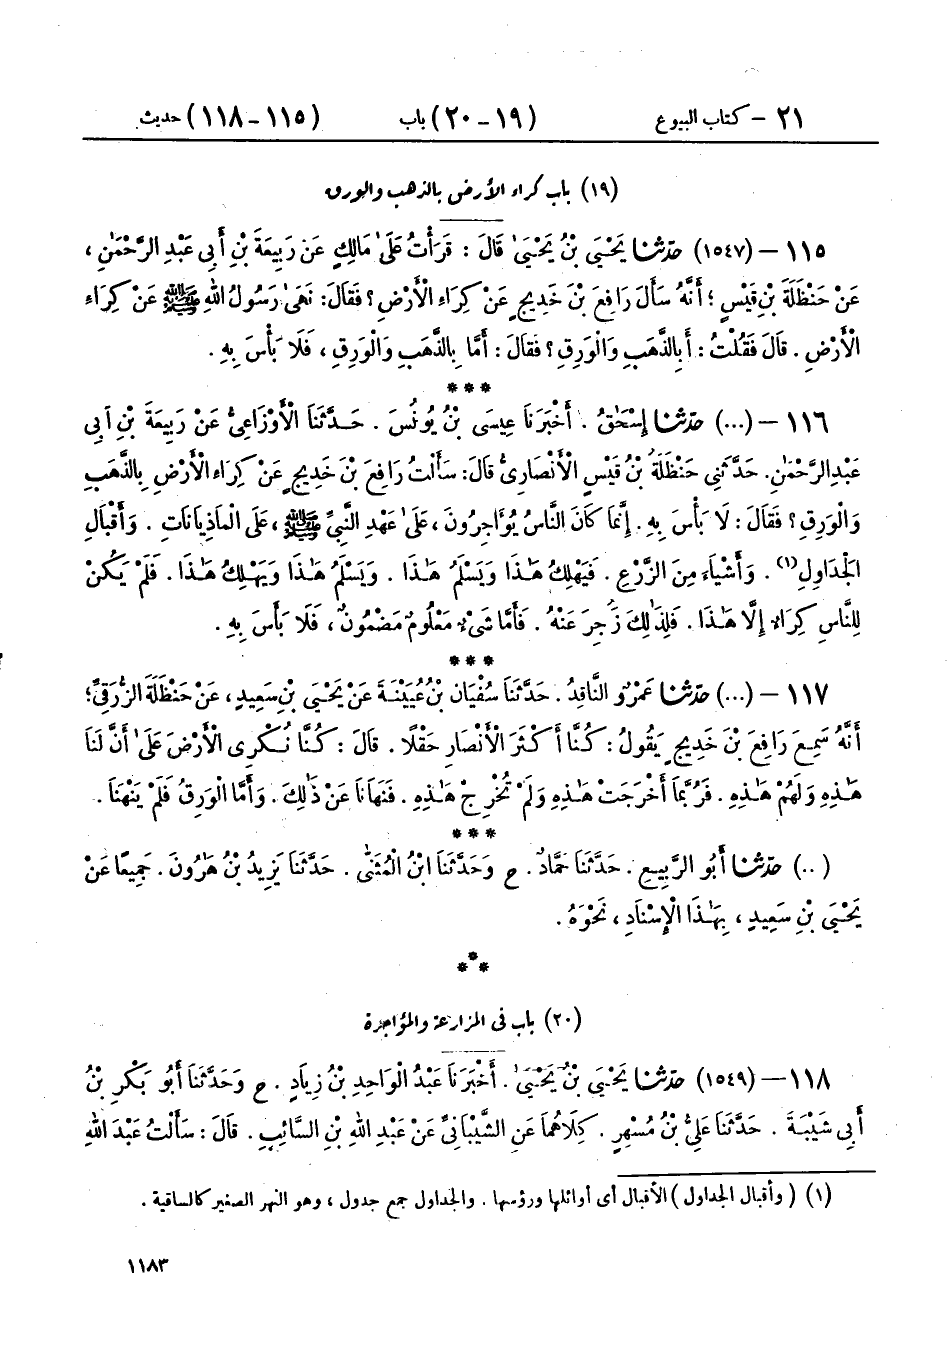 ٢١ – كتاب البيوع (١٩ – ٢٠) باب (١١٥ – ١١٨) حديث
(١٩) باب كراء الأرض بالذهب والورق
١١٥ – (١٥٤٧) حَدَّثَنَا يَحْيَىٰ بْنُ يَحْيَىٰ قَالَ : قَرَأْتُ عَلَىٰ مَالِكٍ عَنْ رَبِيعَةَ بْنِ أَبِي عَبْدِ الرَّحْمَـٰنِ ،
عَنْ حَنْظَلَةَ بْنِ قَيْسٍ ؛ أَنَّهُ سَأَلَ رَافِعَ بْنَ خَدِيجٍ عَنْ كِرَاءِ الْأَرْضِ ؟ فَقَالَ: نَهَىٰ رَسُولُ اللهِ ﷺ عَنْ كِرَاءِ
الْأَرْضِ . قَالَ فَقُلْتُ : أَبِالذَّهَبِ وَالْوَرِقِ ؟ فَقَالَ : أَمَّا بِالذَّهَبِ وَالْوَرِقِ ، فَلَا بَأْسَ بِهِ .
***
١١٦ – (...) حَدَّثَنَا إِسْحَٰقُ . أَخْبَرَنَا عِيسَى بْنُ يُونُسَ . حَدَّثَنَا الْأَوْزَاعِيُّ عَنْ رَبِيعَةَ بْنِ أَبِي
عَبْدِ الرَّحْمَـٰنِ. حَدَّثَنِي حَنْظَلَةُ بْنُ قَيْسٍ الْأَنْصَارِيُّ قَالَ: سَأَلْتُ رَافِعَ بْنَ خَدِيجٍ عَنْ كِرَاءِ الْأَرْضِ بِالذَّهَبِ
وَالْوَرِقِ ؟ فَقَالَ : لَا بَأْسَ بِهِ . إِنَّمَا كَانَ النَّاسُ يُؤَاجِرُونَ ، عَلَىٰ عَهْدِ النَّبِيِّ ﷺ ، عَلَى الْمَاذِيَانَاتِ . وَأَقْبَالِ
الْجَدَاوِلِ (١) . وَأَشْيَاءَ مِنَ الزَّرْعِ . فَيَهْلِكُ هَـٰذَا وَيَسْلَمُ هَـٰذَا . وَيَسْلَمُ هَـٰذَا وَيَهْلِكُ هَـٰذَا . فَلَمْ يَكُنْ
لِلنَّاسِ كِرَاءٌ إِلَّا هَـٰذَا . فَلِذَٰلِكَ زُجِرَ عَنْهُ . فَأَمَّا شَيْءٌ مَعْلُومٌ مَضْمُونٌ ، فَلَا بَأْسَ بِهِ .
***
١١٧ – (...) حَدَّثَنَا عَمْرٌو النَّاقِدُ . حَدَّثَنَا سُفْيَانُ بْنُ عُيَيْنَةَ عَنْ يَحْيَىٰ بْنِ سَعِيدٍ ، عَنْ حَنْظَلَةَ الزُّرَقِيِّ ؛
أَنَّهُ سَمِعَ رَافِعَ بْنَ خَدِيجٍ يَقُولُ : كُنَّا أَكْثَرَ الْأَنْصَارِ حَقْلًا . قَالَ : كُنَّا نُكْرِى الْأَرْضَ عَلَىٰ أَنَّ لَنَا
هَـٰذِهِ وَلَهُمْ هَـٰذِهِ . فَرُبَّمَا أَخْرَجَتْ هَـٰذِهِ وَلَمْ تُخْرِجْ هَـٰذِهِ . فَنَهَانَا عَنْ ذَٰلِكَ . وَأَمَّا الْوَرِقُ فَلَمْ يَنْهَنَا .
***
(...) حَدَّثَنَا أَبُو الرَّبِيعِ . حَدَّثَنَا حَمَّادٌ . ح وَحَدَّثَنَا ابْنُ الْمُثَنَّىٰ . حَدَّثَنَا يَزِيدُ بْنُ هَٰرُونَ . جَمِيعًا عَنْ
يَحْيَىٰ بْنِ سَعِيدٍ ، بِهَـٰذَا الْإِسْنَادِ ، نَحْوَهُ .
***
(٢٠) باب فى المزارعة والمؤاجرة
١١٨ – (١٥٤٩) حَدَّثَنَا يَحْيَىٰ بْنُ يَحْيَىٰ . أَخْبَرَنَا عَبْدُ الْوَاحِدِ بْنُ زِيَادٍ . ح وَحَدَّثَنَا أَبُو بَكْرِ بْنُ
أَبِي شَيْبَةَ . حَدَّثَنَا عَلِيُّ بْنُ مُسْهِرٍ . كِلَاهُمَا عَنِ الشَّيْبَانِيِّ عَنْ عَبْدِ اللهِ بْنِ السَّائِبِ . قَالَ : سَأَلْتُ عَبْدَ اللهِ
(١) ( وأقبال الجداول ) الأقبال أى أوائلها ورؤسها . والجداول جمع جدول ، وهو النهر الصغير كالساقية .
١١٨٣